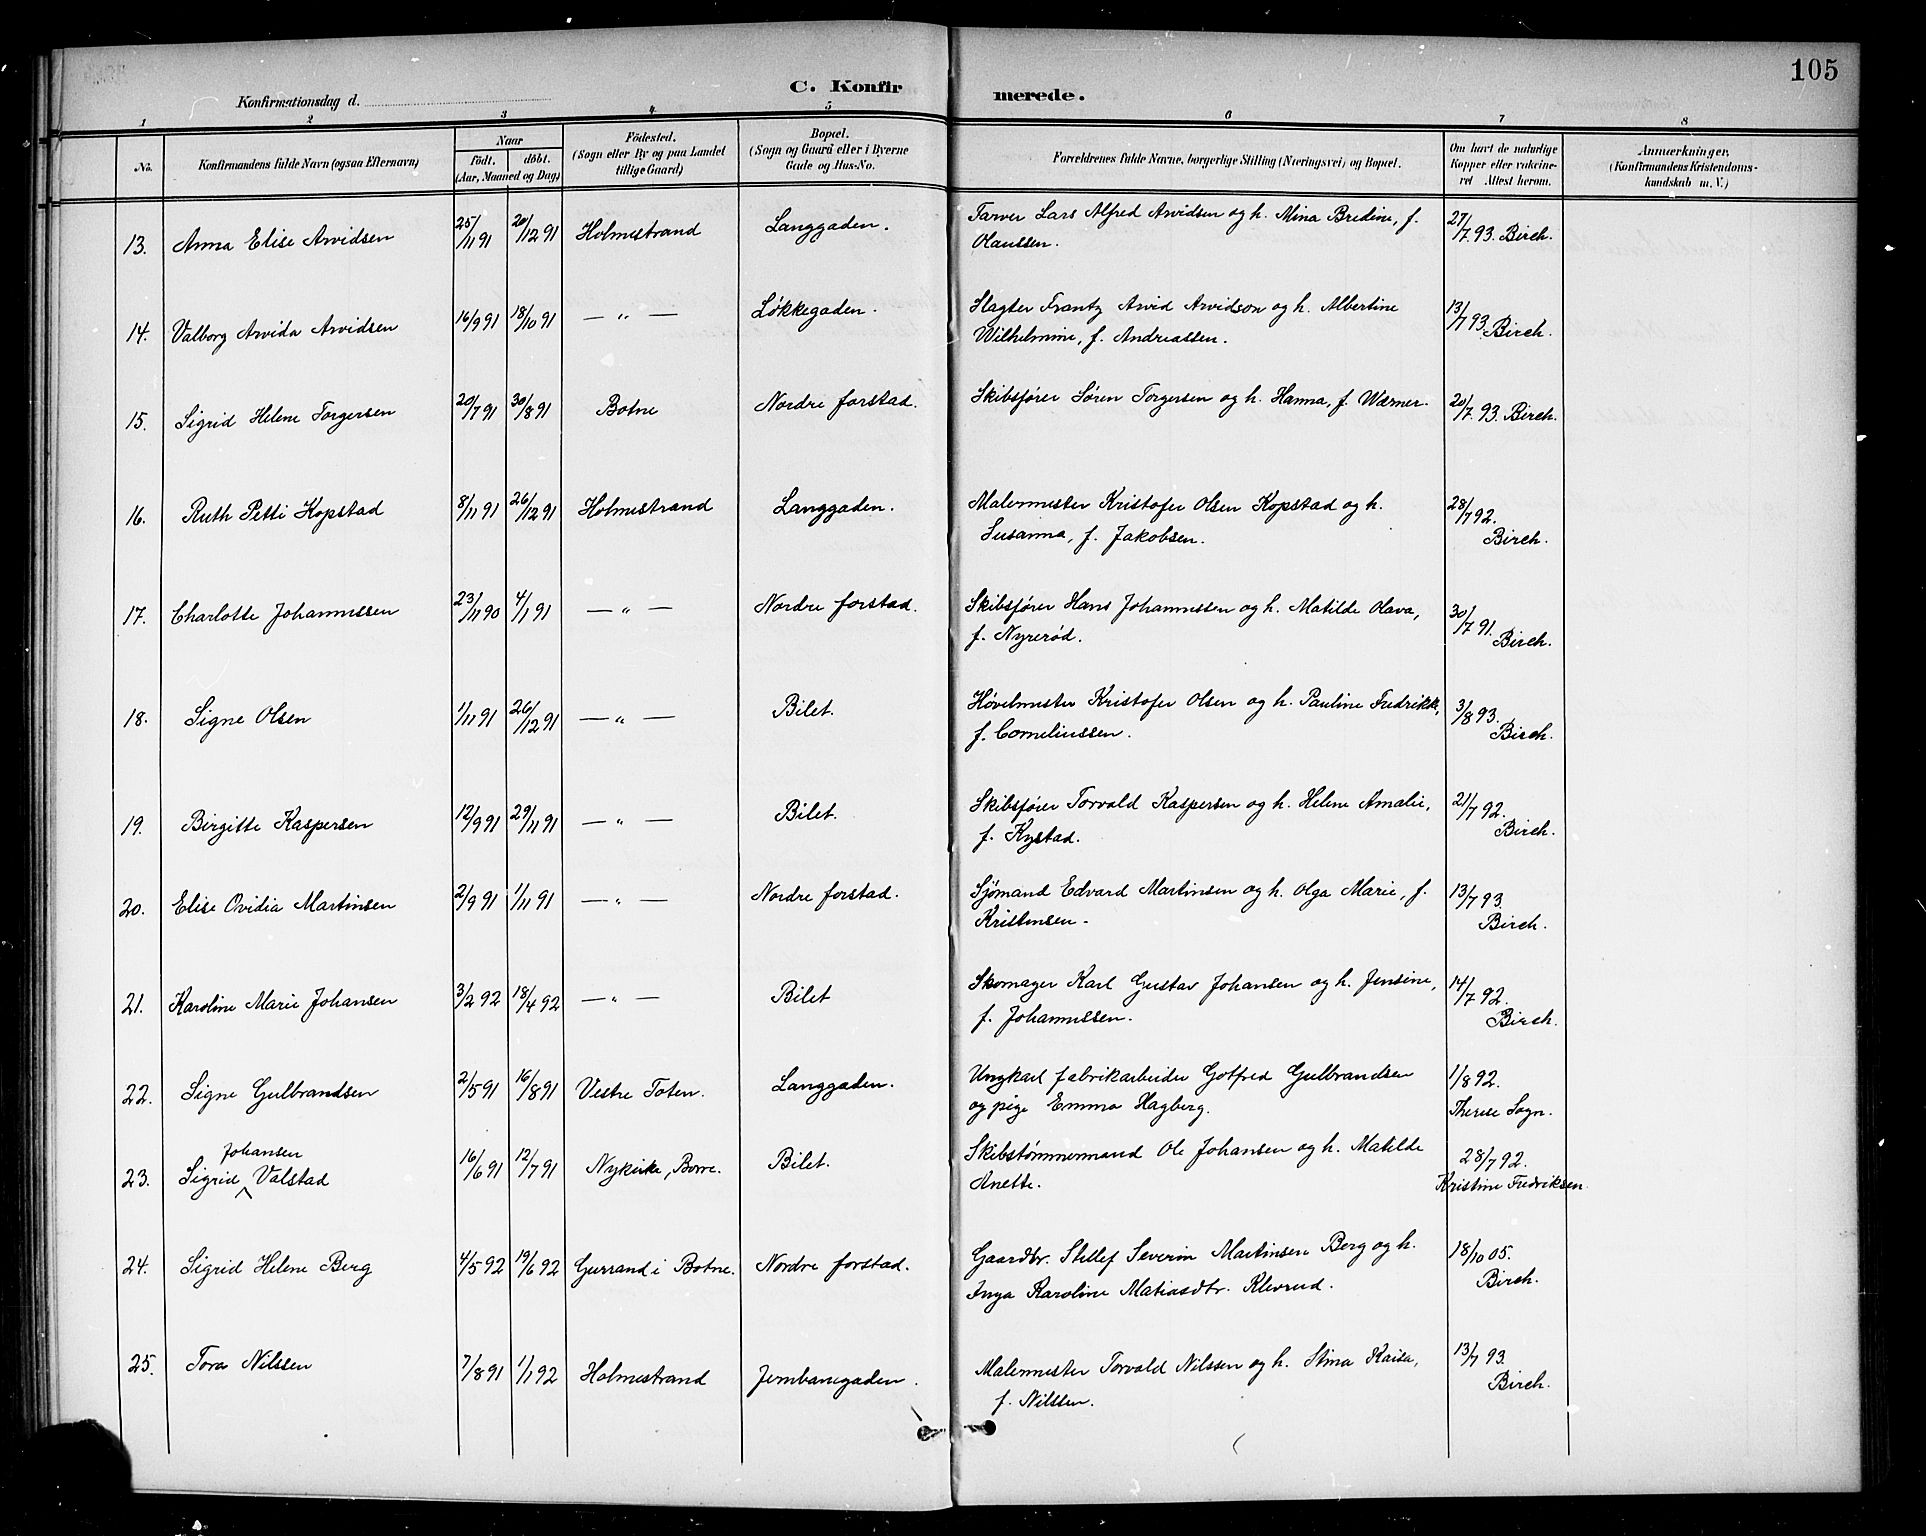 105
Konfirmationsdag d.
C. Konfirmerede.
1 2 3 4 5 6 7 8
No. Konfirmandens fulde Navn (ogsaa Efternavn) Naar födt. döbt. (Aar, Maaned og Dag) Födested. (Sogn eller By og paa Landet tillige Gaard) Bopæl. (Sogn og Gaard eller i Byerne Gade og Hus-No. Forældrenes fulde Navne, borgerlige Stilling (Næringsvei) og Bopæl. Om havt de naturlige Kopper eller vakcineret Attest herom. Anmærkninger, (Konfirmandens Kristendomskundskab m. V.)
13. Anna Elise Arvidsen 25/11 91 20/12 91 Holmestrand Langgaden. Farver Lars Alfred Arvidsen og h. Mina Bredine, f. 27/7 93. Birch.
Olaussen.
14. Valborg Arvida Arvidsen 16/9 91 18/10 91 — " — Løkkegaden. Slagter Frantz Arvid Arvidson og h. Albertine 13/7 93 Birch.
Wilhelmine, f. Andreassen.
15. Sigrid Helene Torgersen 20/7 91 30/8 91 Botne Nordre forstad. Skibsfører Søren Torgersen og h. Hanna, f. Wærner. 20/7. 93. Birch.
16. Ruth Petti Kopstad 8/11 91 26/12 91 Holmestrand Langgaden. Malermester Kristofer Olsen Kopstad og h. 28/7 92.
Susanna, f. Jakobsen. Birch.
17. Charlotte Johannessen 23/11 90 4/1 91 — " — Nordre forstad. Skibsfører Hans Johannessen og h. Matilde Olava, 30/7 91.
f. Nyrerød. Birch.
18. Signe Olsen 1/11 91 26/12 91 — " — Bilet. Høvelmester Kristofer Olsen og h. Pauline Fredrikke, 3/8 93.
f. Corneliussen. Birch.
19. Birgitte Kaspersen 12/9 91 29/11 91 — " — Bilet. Skibsfører Torvald Kaspersen og h. Helene Amalie, 21/7 92.
f. Kystad. Birch.
20. Elise Ovidia Martinsen 2/9 91 1/11 91 — " — Nordre forstad. Sjømand Edvard Martinsen og h. Olga Marie, f. 13/7 93.
Kristensen. Birch.
21. Karoline Marie Johansen 3/2 92 18/4 92 — " — Bilet Skomager Karl Gustav Johansen og h. Jensine, 14/7 92.
f. Johannessen. Birch.
22. Signe Gulbrandsen 2/5 91 16/8 91 Vestre Toten. Langgaden. Ungkarl fabrikarbeider Gotfred Gulbrandsen 1/8 92.
og pige Emma Hagberg. Therese Sogn.
23. Sigrid Johansen Valstad 16/6 91 12/7 91 Nykirke, Borre. Bilet. Skibstømmermand Ole Johansen og h. Matilde 28/7 92.
Anette. Kristine Fredriksen.
24. Sigrid Helene Berg 4/5 92 19/6 92 Gurrand i Botne. Nordre forstad. Gaardbr. Stillef Severin Martinsen Berg og h. 18/10 05.
Inga Karoline Matiasdtr. Klevrud. Birch.
25. Tora Nilssen 7/8 91 1/1 92 Holmestrand Jernbanegaden. Malermester Torvald Nilssen og h. Stina Kaisa, 13/7 93.
f. Nilssen. Birch.